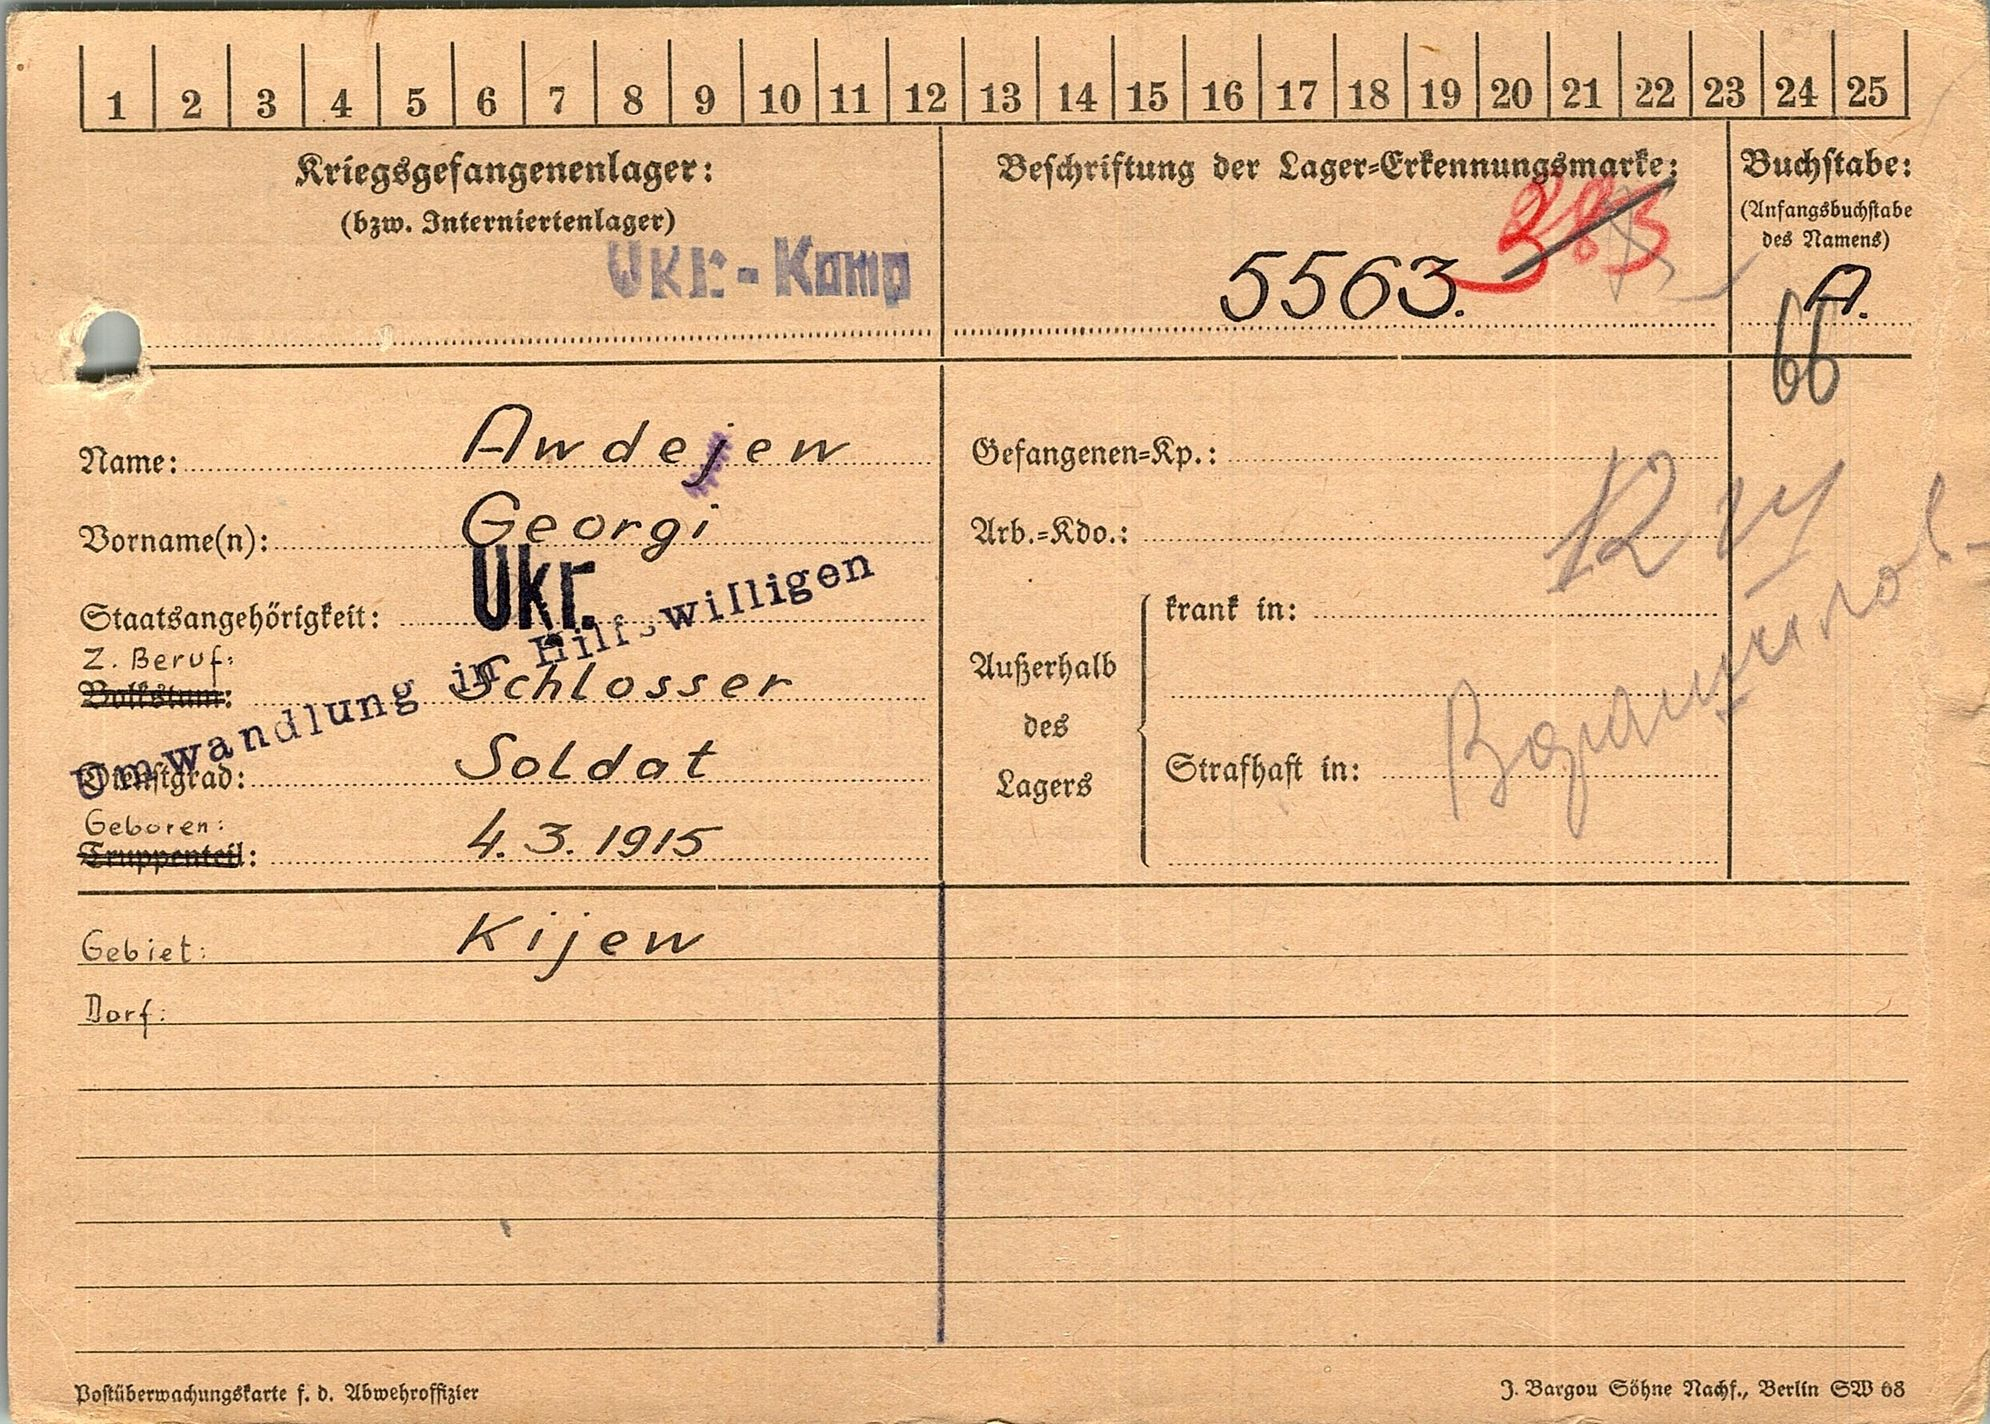 1 2 3 4 5 6 7 8 9 10 11 12 13 14 15 16 17 18 19 20 21 22 23 24 25
Kriegsgefangenenlager:
(bzw. Interniertenlager)
Ukr.-Komp
Beschriftung der Lager-Erkennungsmarke:
5563.
Buchstabe:
(Anfangsbuchstabe
des Namens)
A.
66
Name: Awdejew
Vorname(n): Georgi
Staatsangehörigkeit: Ukr.
Umwandlung in Hilfswilligen
Z. Beruf:
Volkstum: Schlosser
Dienstgrad: Soldat
Geboren:
Truppenteil: 4. 3. 1915
Gefangenen-Kp.:
Arb.-Kdo.:
Außerhalb
des
Lagers
krank in:
Strafhaft in:
Gebiet: Kijew
Dorf:
Postüberwachungskarte f. d. Abwehroffizier
J. Bargou Söhne Nachf., Berlin SW 68